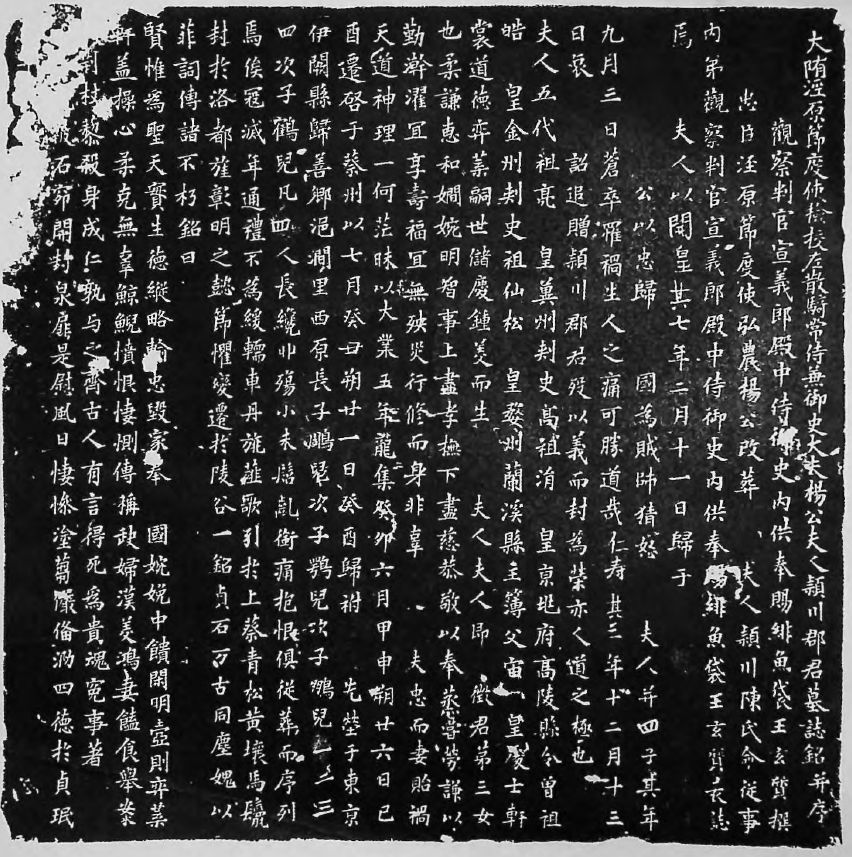 大隋涇原節度使檢校左散騎常侍兼御史大夫楊公夫人潁川郡君墓誌銘并序
觀察判官宣義郎殿中侍御史內供奉賜緋魚袋王玄質撰
忠臣涇原節度使弘農楊公改葬 夫人潁川陳氏命從事
內弟觀察判官宣義郎殿中侍御史內供奉賜緋魚袋王玄質衣誌
焉 夫人以開皇其七年二月十一日歸于
公以忠歸 國為賊帥猜怒 夫人并四子其年
九月三日蒼卒罹禍生人之痛可勝道哉仁壽其三年十二月十三
日哀 詔追贈潁川郡君歿以義而封為榮亦人道之極也
夫人五代祖亮 皇冀州刺史高祖湑 皇京兆府高陵縣令曾祖
皓 皇金州刺史祖仙松 皇婺州蘭溪縣主簿父宙 皇慶士軒
裳道德弈葉嗣世儲慶鍾美而生 夫人夫人即 徵君第三女
也柔謙惠和嫺婉明智事上盡孝撫下盡慈恭敬以奉蒸嘗勞謙以
勤澣濯宜享壽福宜無殃災行修而身非辜 夫忠而妻貽禍
天道神理一何茫昧以大業五年龍集癸卯六月甲申朔廿六日己
酉遷啓于蔡州以七月癸丑朔廿一日癸酉歸祔 先塋于東京
伊闕縣歸善鄉浥澗里西原長子鸕兒次子鶚兒次子鸚兒
四次子鶴兒凡四人長纔非殤小未髫亂銜痛抱恨俱從葬而序列
焉俟冠滅年通禮不為緩轜車丹旐薤歌引於上蔡青松黃壤馬鬣
封於洛都旌彰明之懿節懼變遷於陵谷一銘貞石万古同塵媿以
菲詞傳諸不朽銘曰
賢惟為聖天實生德縱略輸忠毀家奉 國婉娩中饋閑明壼則弈葉
軒蓋操心柔克無辜鯨鯢憤恨悽惻傳稱缺婦漢美鴻妻饁食舉案
杖藜殺身成仁孰与之齊古人有言得死為貴魂冤事著
石帘開封泉扉是慰風日悽慘塗蒭儼備泐四德於貞珉